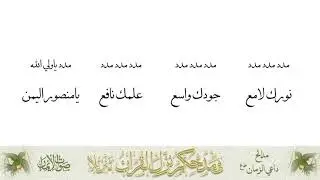 مدد مدد مدد مدد مدد مدد مدد مدد مدد مدد ياولي الله
نورك لامع جودك واسع علمك نافع يامنصور اليمن
مدائح
داعي الزمان